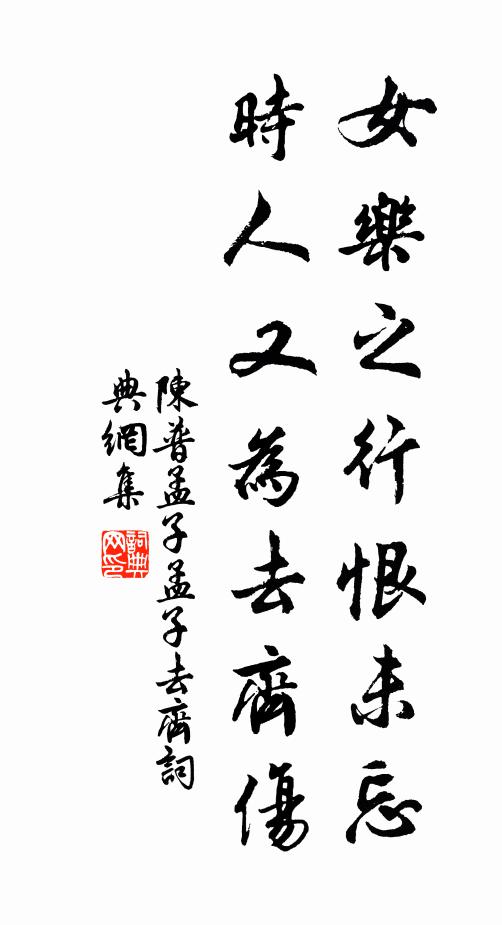 女樂之行恨未忘
時人又為去齊傷
陳普孟子孟子去齊詞
典網集
詞典
网印